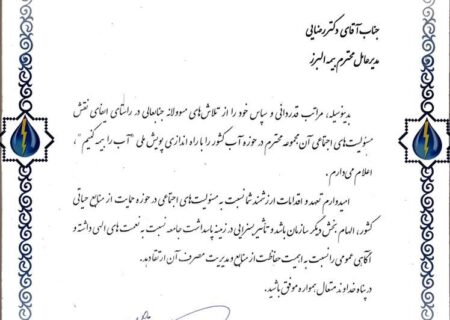 جناب آقای دکتر رضایی
مدیرعامل محترم بیمه البرز
بدینوسیله، مراتب قدردانی و سپاس خود را از تلاش‌های مسوولانه جنابعالی در راستای ایفای نقش
مسئولیت‌های اجتماعی آن مجموعه محترم در حوزه آب کشور را با راه اندازی پویش ملی "آب را بیمه کنیم"،
اعلام می‌دارم.
امیدوارم تعهد و اقدامات ارزشمند شما نسبت به مسئولیت‌های اجتماعی در حوزه حمایت از منابع حیاتی
کشور، الهام بخش دیگر سازمان باشد و تأثیر بسزایی در زمینه پاسداشت جامعه نسبت به نعمت های الهی داشته و
آگاهی عمومی را نسبت به اهمیت حفاظت از منابع و مدیریت مصرف آن ارتقا دهد.
در پناه خداوند متعال همواره موفق باشید.